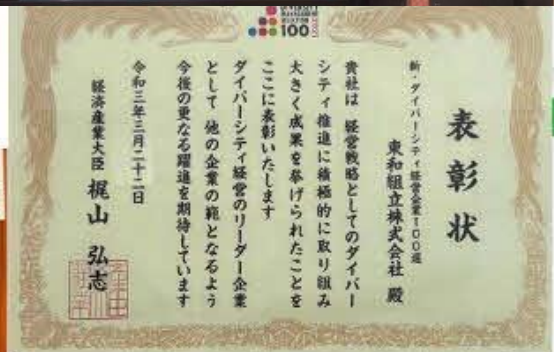 100
表彰状
新・ダイバーシティ経営企業100選
東和組立株式会社 殿
貴社は 経営戦略としてのダイバー
シティ推進に積極的に取り組み
大きく成果を挙げられたことを
ここに表彰いたします
ダイバーシティ経営のリーダー企業
として 他の企業の範となるよう
今後の更なる躍進を期待しています
令和三年三月二十二日
経済産業大臣 梶山 弘志